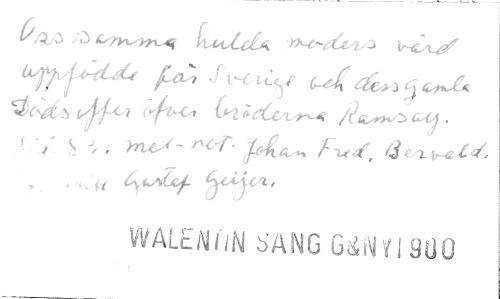 Oss samma hulda moders vård
uppfödde för Sverige och dess gamla
Dödsoffer öfver bröderna Ramsay.
met-not. Johan Fred. Berwald.
Gustaf Geijer.
WALENTIN SANG G&NY1900